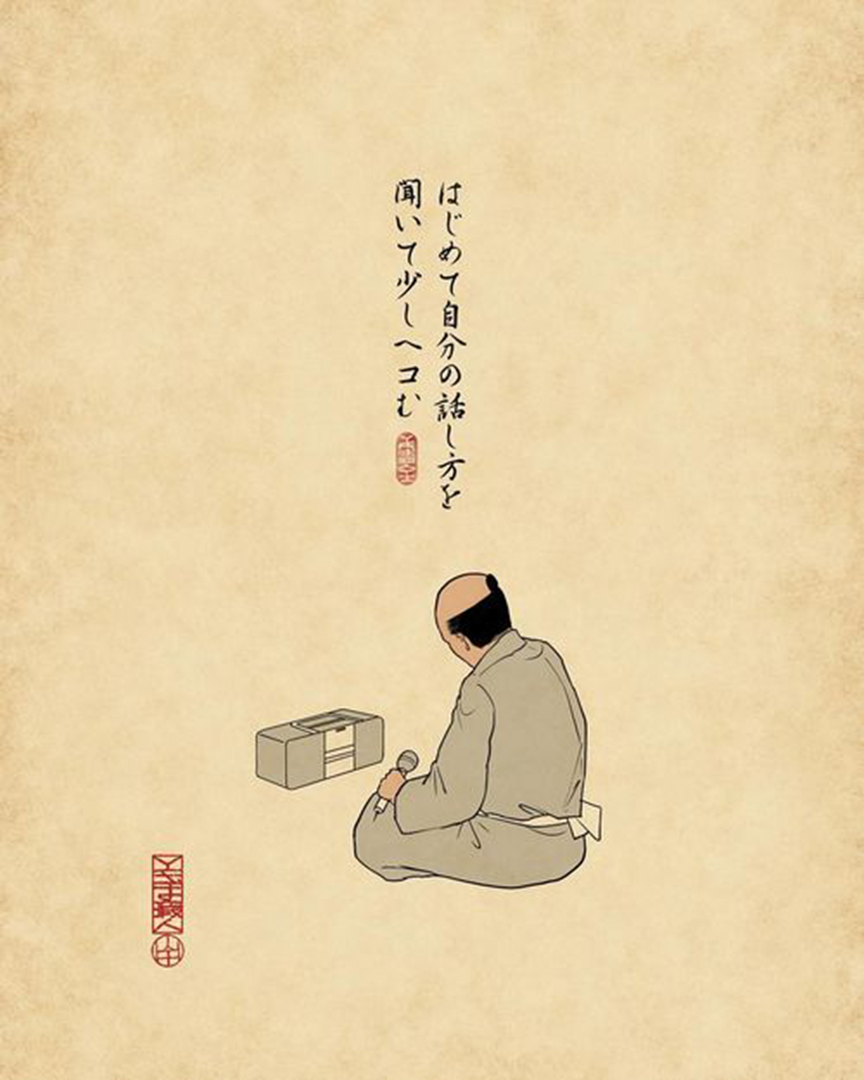 はじめて自分の話し方を
聞いて少しヘコむ